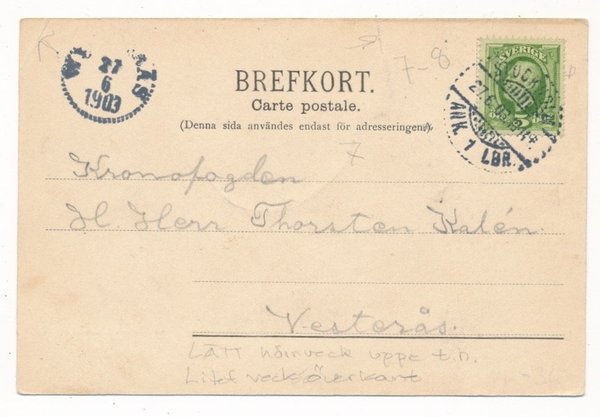 ÅS
27
6
1903
7-8
SVERIGE
5
ANK. 1 LBR.
BREFKORT.
Carte postale.
(Denna sida användes endast för adresseringen)
7
Kronofogden
H. Herr Thorsten Kalén.
Vesterås.
Lätt hörnveck uppe t.h.
Litet veck överkant